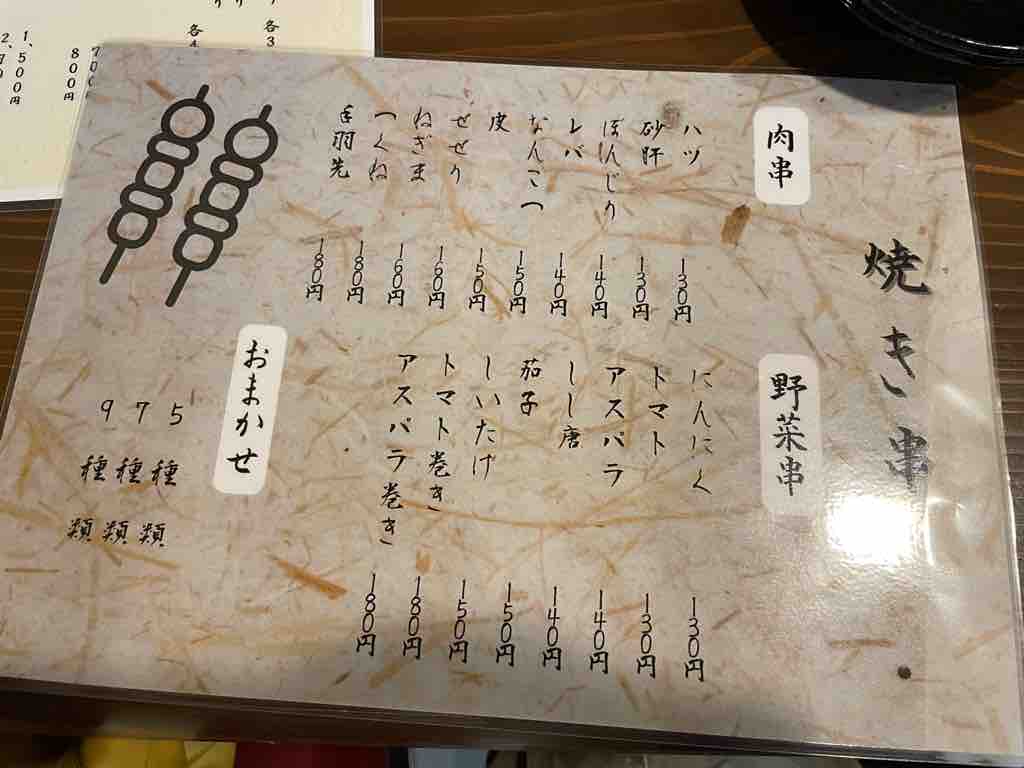 焼き串
肉串
ハツ 130円
砂肝 130円
ぼんじり 140円
レバ 140円
なんこつ 150円
皮 150円
せせり 160円
ねぎま 160円
つくね 180円
手羽先 180円
野菜串
にんにく 130円
トマト 130円
アスパラ 140円
しし唐 140円
茄子 150円
しいたけ 150円
トマト巻き 180円
アスパラ巻き 180円
おまかせ
5種類
7種類
9種類
各3
各4
800円
1、500円